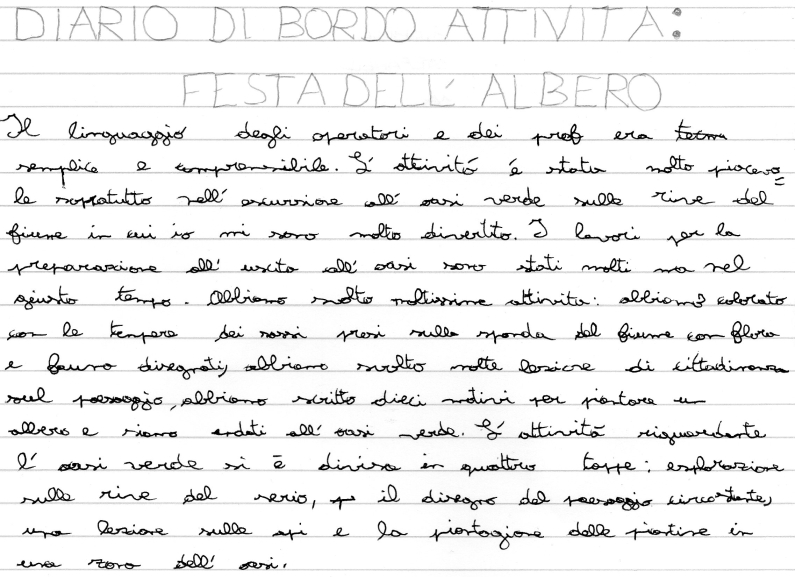 DIARIO DI BORDO ATTIVITÀ:
FESTA DELL' ALBERO
Il linguaggio degli operatori e dei prof era
semplice e comprensibile. L' attività è stata molto piacevo=
le sopratutto nell' escursione all' oasi verde sulle rive del
fiume in cui io mi sono molto divertito. I lavori per la
preparazione all' uscita all' oasi sono stati molti ma nel
giusto tempo. Abbiamo svolto moltissime attivita: abbiamo colorato
con le tempere dei sassi presi sulla sponda del fiume con flora
e fauna disegnati, abbiamo svolto molte lezione di cittadinanza
sul paesaggio, abbiamo scritto dieci motivi per piantare un
albero e siamo andati all' oasi verde. L' attività riguardante
l' oasi verde si è divisa in quattro tappe: esplorazione
sulle rive del serio, il disegno del paesaggio circostante,
una lezione sulle api e la piantagione delle piantine in
una zona dell' oasi.